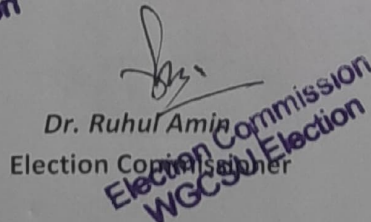 Dr. Ruhul Amin
Election Commissioner
Election Commission
WGCSU Election